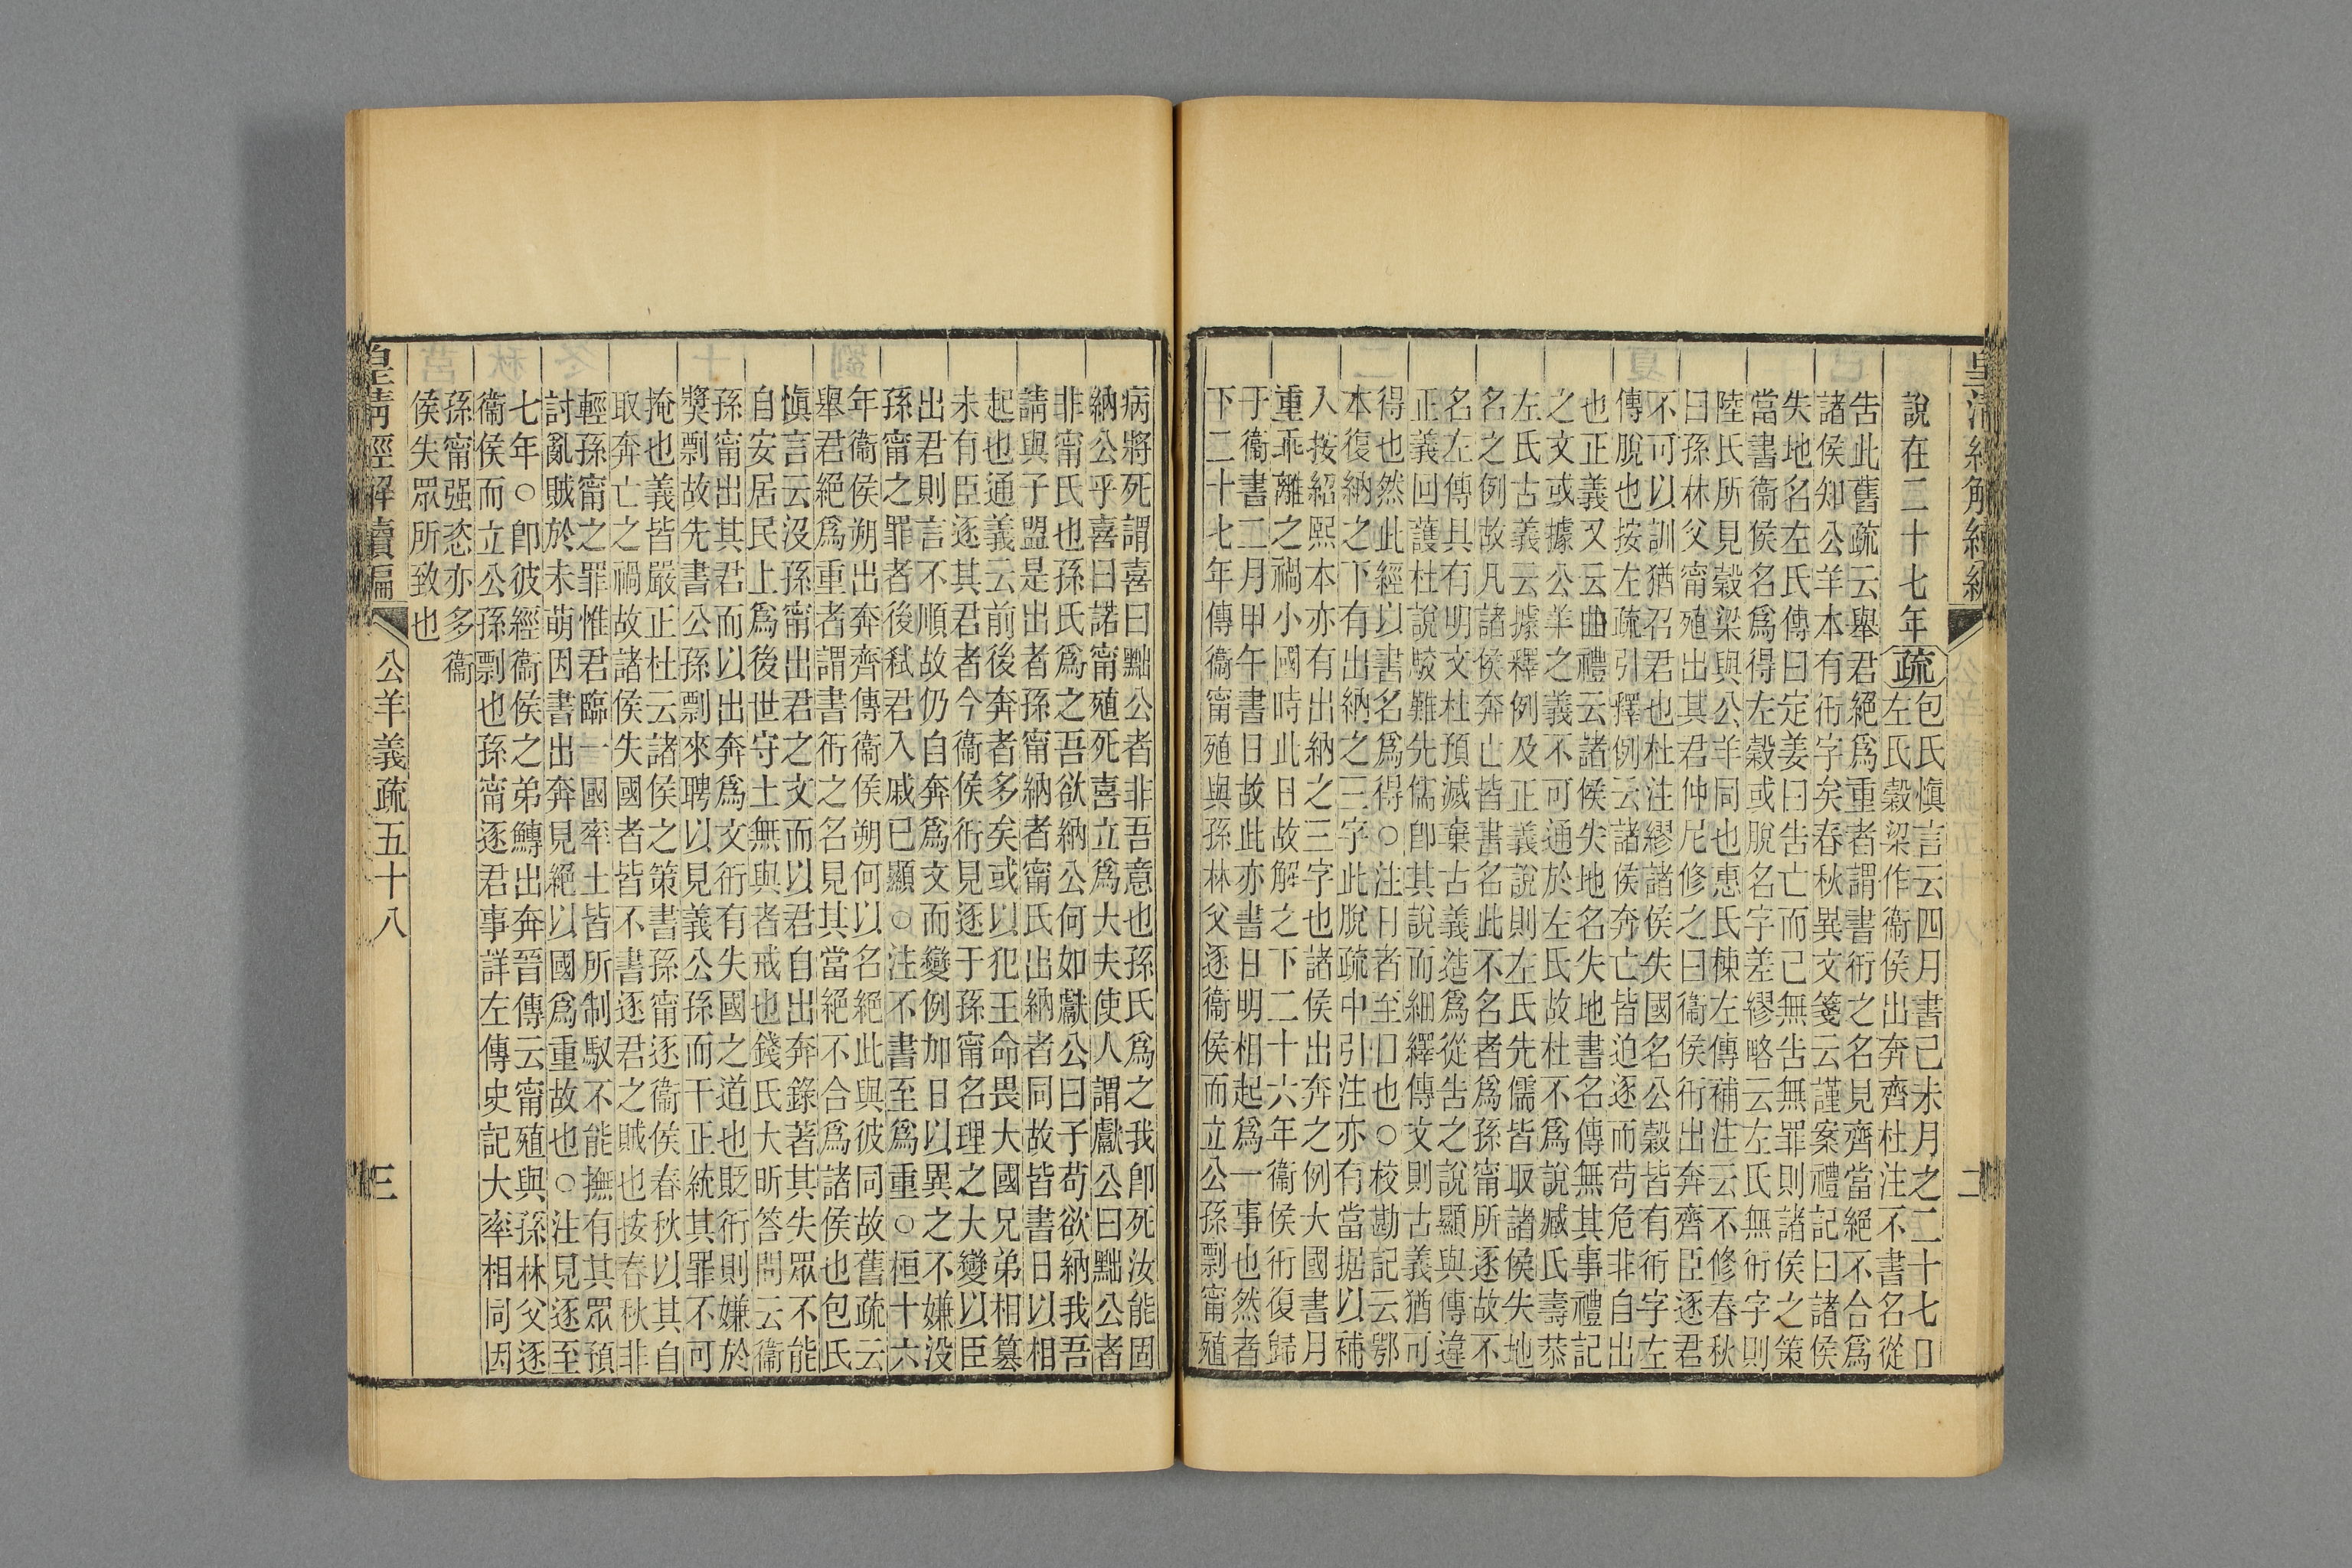 皇清經解續編 二
說在二十七年疏包氏慎言云四月書己未月之二十七日
左氏穀梁作衞侯出奔齊杜注不書名從
告此舊疏云舉君絕爲重者謂書衎之名見齊當絕不合爲
諸侯知公羊本有衎字矣春秋異文箋云謹案禮記曰諸侯
失地名左氏傳曰定姜曰告亡而已無告無罪則諸侯之策
當書衞侯名爲得左穀或脫名字差繆略云左氏無衎字則
陸氏所見穀梁與公羊同也惠氏棟左傳補注云不修春秋
曰孫林父甯殖出其君仲尼修之曰衞侯衎出奔齊臣逐君
不可以訓猶召君也杜注繆諸侯失國名公穀皆有衎字左
傳脫也按左疏引釋例云諸侯奔亡皆迫逐而苟危非自出
也正義又云曲禮云諸侯失地名失地書名傳無其事禮記
之文或據公羊之義不可通於左氏故杜不爲說臧氏壽恭
左氏古義云據釋例及正義說則左氏先儒皆取諸侯失地
名之例故凡諸侯奔亡皆書名此不名者爲孫甯所逐故不
名左傳具有明文杜預滅棄古義造爲從告之說顯與傳違
正義回護杜說駁難先儒卽其說而細繹傳文則古義猶可
得也然此經以書名爲得○注日者至日也○校勘記云鄂
本復納之下有出納之三字此脫疏中引注亦有當据以補
入按紹熙本亦有出納之三字也諸侯出奔之例大國書月
重乖離之禍小國時此日故解之下二十六年衞侯衎復歸
于衞書二月甲午書日故此亦書日明相起爲一事也然者
下二十七年傳衞甯殖與孫林父逐衞侯而立公孫剽甯殖
病將死謂喜曰黜公者非吾意也孫氏爲之我卽死汝能固
納公乎喜曰諾甯殖死喜立爲大夫使人謂獻公曰黜公者
非甯氏也孫氏爲之吾欲納公何如獻公曰子苟欲納我吾
請與子盟是出者孫甯納者甯氏出納者同故皆書日以相
起也通義云前後奔者多矣或以犯王命畏大國兄弟相篡
未有臣逐其君者今衞侯衎見逐于孫甯名理之大變以臣
出君則言不順故仍自奔爲文而變例加日以異之不嫌沒
孫甯之罪者後弒君入戚已顯○注不書至爲重○桓十六
年衞侯朔出奔齊傳衞侯朔何以名絕此與彼同故舊疏云
舉君絕爲重者謂書衎之名見其當絕不合爲諸侯也包氏
慎言云沒孫甯出君之文而以君自出奔錄著其失眾不能
自安居民上爲後世守土無與者戒也錢氏大昕答問云衞
孫甯出其君而以出奔爲文衎有失國之道也貶衎則嫌於
獎剽故先書公孫剽來聘以見義公孫而干正統其罪不可
掩也義皆嚴正杜云諸侯之策書孫甯逐衞侯春秋以其自
取奔亡之禍故諸侯失國者皆不書逐君之賊也按春秋非
輕孫甯之罪惟君臨一國率土皆所制馭不能撫有其眾預
討亂賊於未萌因書出奔見絕以國爲重故也○注見逐至
七年○卽彼經衞侯之弟鱄出奔晉傳云甯殖與孫林父逐
衞侯而立公孫剽也孫甯逐君事詳左傳史記大率相同因
孫甯强恣亦多衞
侯失眾所致也
皇清經解續編 公羊義疏五十八 三